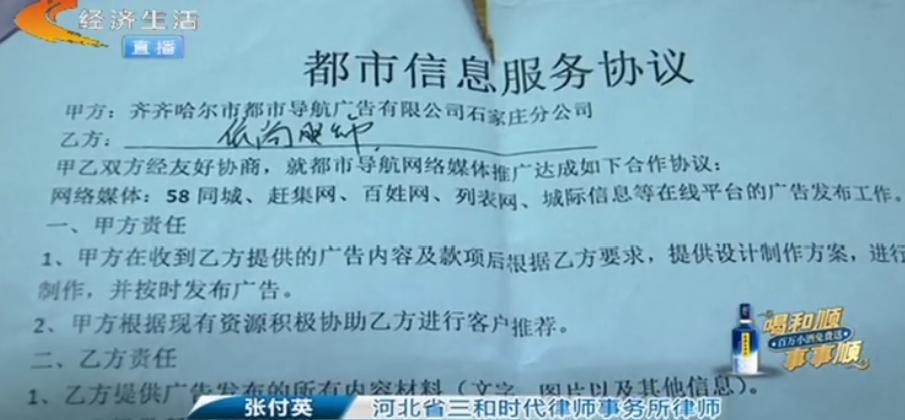 经济生活
直播
都市信息服务协议
甲方：齐齐哈尔市都市导航广告有限公司石家庄分公司
乙方：
甲乙双方经友好协商，就都市导航网络媒体推广达成如下合作协议：
网络媒体：58同城、赶集网、百姓网、列表网、城际信息等在线平台的广告发布工作。
一、甲方责任
1、甲方在收到乙方提供的广告内容及款项后根据乙方要求，提供设计制作方案，进行
制作，并按时发布广告。
2、甲方根据现有资源积极协助乙方进行客户推荐。
二、乙方责任
1、乙方提供广告发布的所有内容材料（文字、图片以及其他信息）。
喝和顺
百万小酒免费送
事事顺
张付英 河北省三和时代律师事务所律师